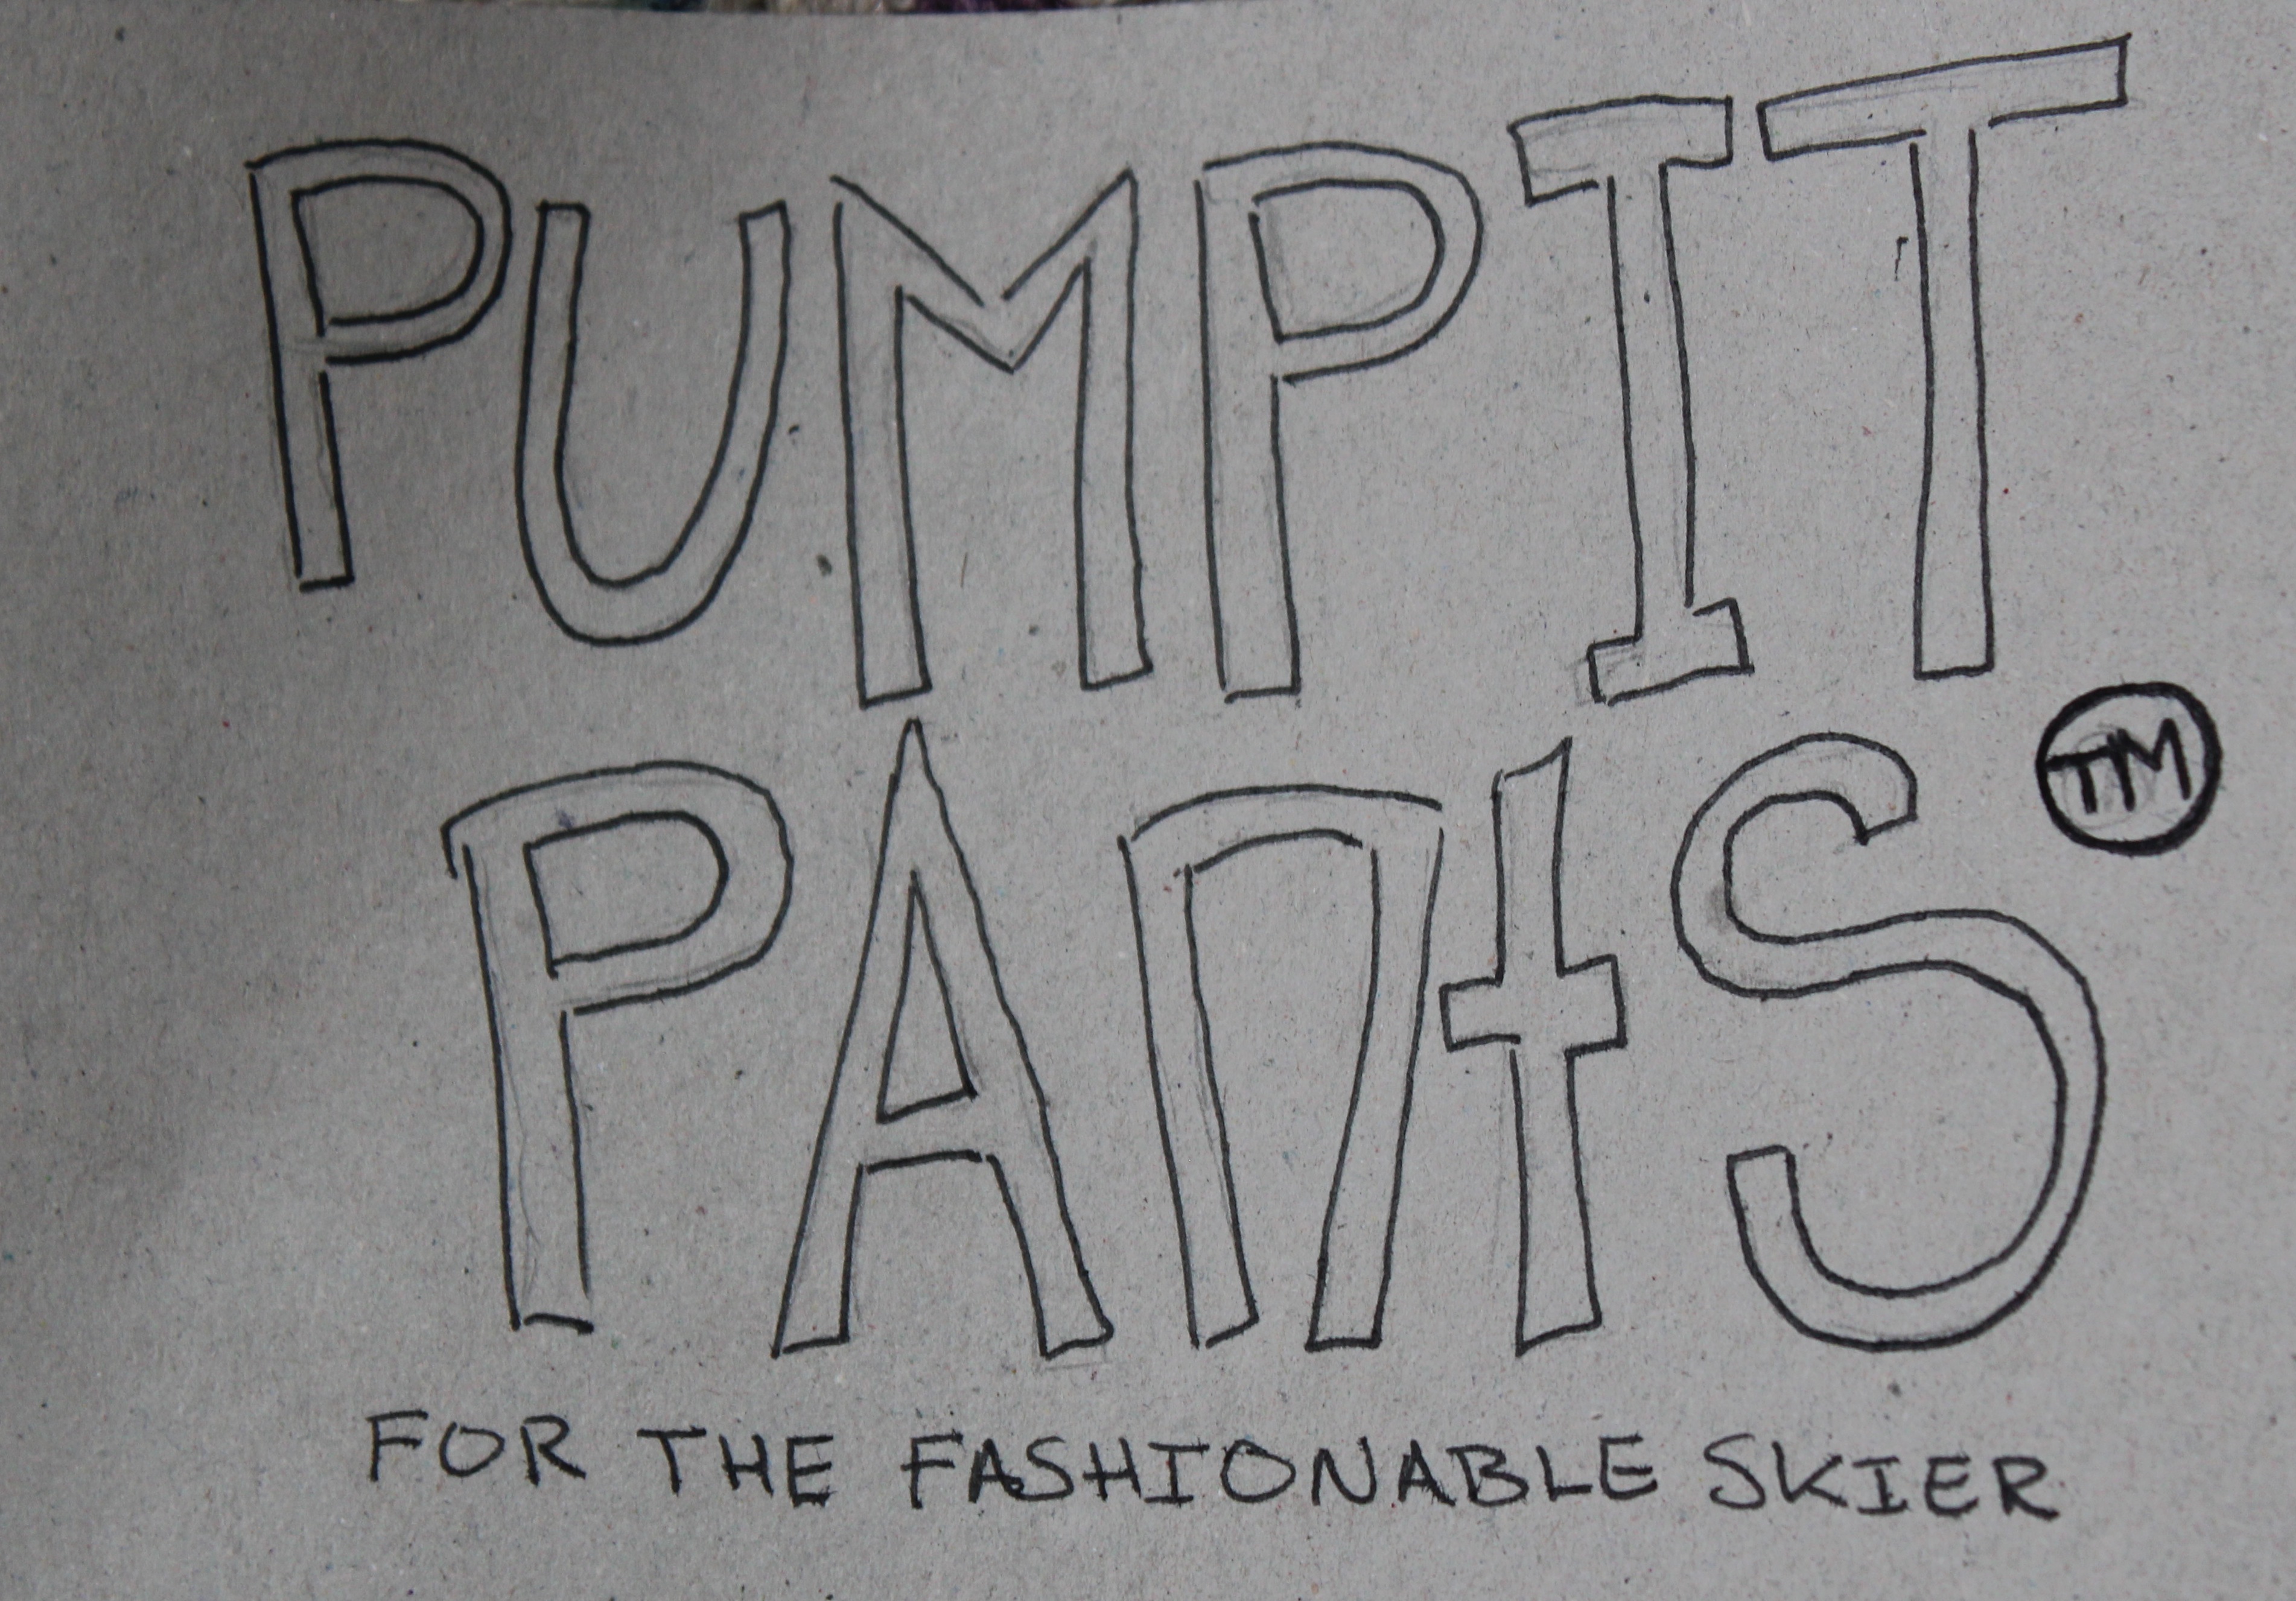 PUMP IT
PAntS TM
FOR THE FASHIONABLE SKIER